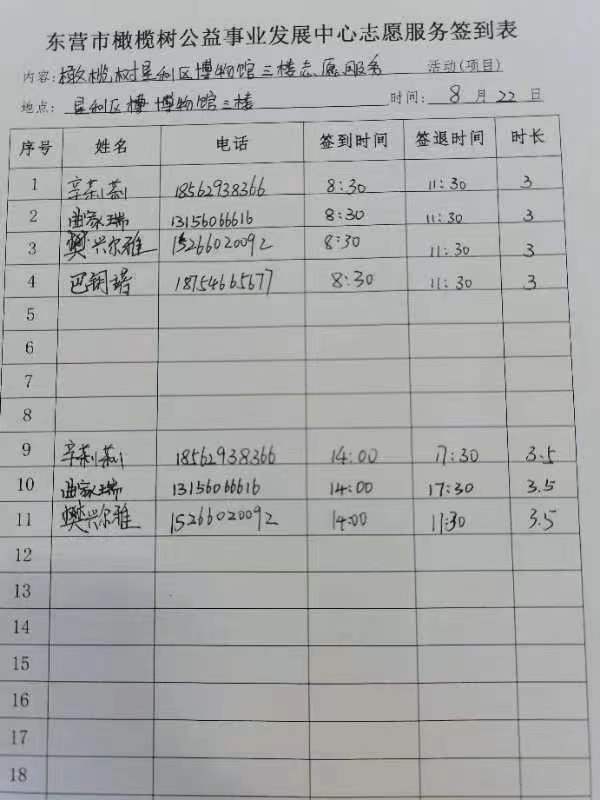 东营市橄榄树公益事业发展中心志愿服务签到表
内容: 橄榄树垦利区博物馆三楼志愿服务 活动(项目)
地点: 垦利区 博物馆三楼 时间: 8 月 22 日
序号 姓名 电话 签到时间 签退时间 时长
1 辛莉莉 18562938366 8:30 11:30 3
2 曲家瑞 13156066616 8:30 11:30 3
3 樊兴尔雅 15266020092 8:30 11:30 3
4 巴钢 18754665677 8:30 11:30 3
5
6
7
8
9 辛莉莉 18562938366 14:00 17:30 3.5
10 曲家瑞 13156066616 14:00 17:30 3.5
11 樊兴尔雅 15266020092 14:00 11:30 3.5
12
13
14
15
16
17
18